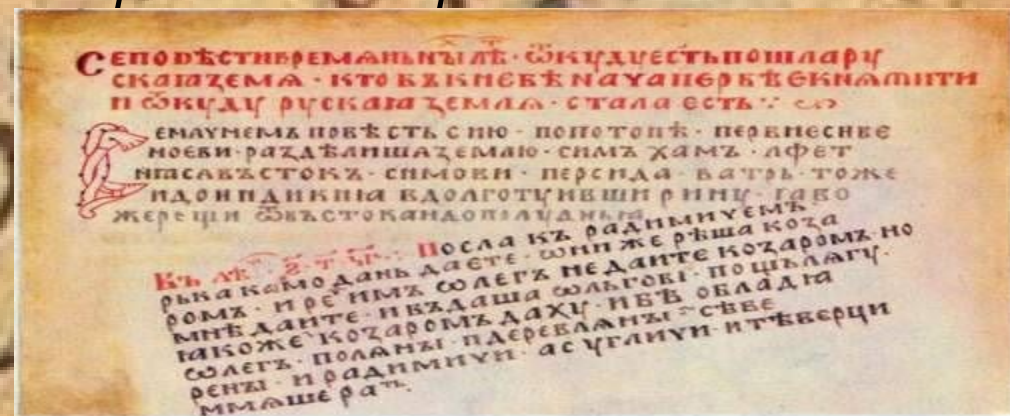 СЕПОВѢСТИВРЕМѦНЬНЫ ЛѢ · ѾКУДУЕСТЬПОШЛАРУ
СКАꙖЗЕМѦ · КТО ВЪКИЕВѢ NАЧАПЕРВѢЕКНѦЖИТИ
И ѾКУДУ РУСКАꙖ ЗЕМЛѦ · СТАЛА ЕСТЬ
ПОВѢСТЬ СИЮ · ПОПОТОПѢ · ПЕРВИЕСНВЕ
НОЕВИ · РАЗДѢЛИШАЗЕМЛЮ · СИМЪ ХАМЪ · АФЕТ
ИꙖСАВЪСТОКЪ · СИМОВИ · ПЕРСИДА · ВАТРЬ · ТОЖЕ
ИДОИНДИКИꙖ ВДОЛГОТУ
ЖЕРЕЩИ ѾВЪСТОКА
ВЪ ЛѢ · ПОСЛА КЪ РАДИМИЧЕМЪ ·
РЬКА КАМО ДАНЬ ДАЕТЕ · ѠНИ ЖЕ РѢША КОЗА
РОМЪ · И РЕ ИМЪ ѠЛЕГЪ НЕ ДАИТЕ КОЗАРОМЪ НО
МНѢ ДАИТЕ · И ВЪДАША ѠЛЬГОВІ · ПО ЩЬЛѦГУ ·
ꙖКОЖЕ КОЗАРОМЪ ДАХУ · И БѢ ОБЛАДАꙖ
ѠЛЕГЪ · ПОЛѦНЫ · И ДЕРЕВЛѦНЫ · СѢВЕ
РЕНЫ · И РАДИМИЧИ · А С УГЛИЧИ · И ТѢВЕРЦИ
ИМѦШЕ РАТЬ